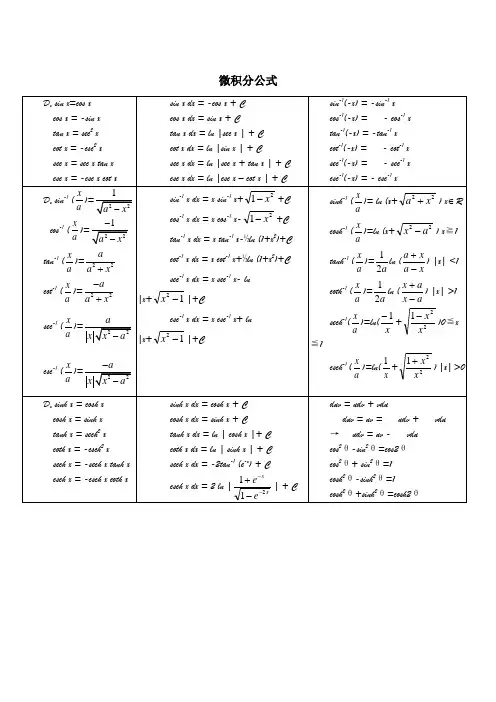 微积分公式
D_x sin x=cos x
cos x = -sin x
tan x = sec² x
cot x = -csc² x
sec x = sec x tan x
csc x = -csc x cot x
sin x dx = -cos x + C
cos x dx = sin x + C
tan x dx = ln |sec x | + C
cot x dx = ln |sin x | + C
sec x dx = ln |sec x + tan x | + C
csc x dx = ln |csc x – cot x | + C
sin⁻¹(-x) = -sin⁻¹ x
cos⁻¹(-x) = - cos⁻¹ x
tan⁻¹(-x) = -tan⁻¹ x
cot⁻¹(-x) = - cot⁻¹ x
sec⁻¹(-x) = - sec⁻¹ x
csc⁻¹(-x) = - csc⁻¹ x
D_x sin⁻¹ (x/a)= 1/√(a²−x²)
cos⁻¹ (x/a)= −1/√(a²−x²)
tan⁻¹ (x/a)= a/(a²+x²)
cot⁻¹ (x/a)= −a/(a²+x²)
sec⁻¹ (x/a)= a/(|x|√(x²−a²))
csc⁻¹ (x/a)= −a/(|x|√(x²−a²))
sin⁻¹ x dx = x sin⁻¹ x+√(1−x²)+C
cos⁻¹ x dx = x cos⁻¹ x-√(1−x²)+C
tan⁻¹ x dx = x tan⁻¹ x-½ln (1+x²)+C
cot⁻¹ x dx = x cot⁻¹ x+½ln (1+x²)+C
sec⁻¹ x dx = x sec⁻¹ x- ln
|x+√(x²−1)|+C
csc⁻¹ x dx = x csc⁻¹ x+ ln
|x+√(x²−1)|+C
sinh⁻¹ (x/a)= ln (x+√(a²+x²)) x∈R
cosh⁻¹ (x/a)=ln (x+√(x²−a²)) x≧1
tanh⁻¹ (x/a)=1/2a ln ((a+x)/(a−x)) |x| <1
coth⁻¹ (x/a)=1/2a ln ((x+a)/(x−a)) |x| >1
sech⁻¹(x/a)=ln(−1/x+√((1−x²)/x²))0≦x
≦1
csch⁻¹ (x/a)=ln(1/x+√((1+x²)/x²)) |x| >0
D_x sinh x = cosh x
cosh x = sinh x
tanh x = sech² x
coth x = -csch² x
sech x = -sech x tanh x
csch x = -csch x coth x
sinh x dx = cosh x + C
cosh x dx = sinh x + C
tanh x dx = ln | cosh x |+ C
coth x dx = ln | sinh x | + C
sech x dx = -2tan⁻¹ (e⁻ˣ) + C
csch x dx = 2 ln |(1+e⁻ˣ)/(1−e⁻²ˣ)| + C
duv = udv + vdu
duv = uv = udv + vdu
→ udv = uv - vdu
cos²θ-sin²θ=cos2θ
cos²θ+ sin²θ=1
cosh²θ-sinh²θ=1
cosh²θ+sinh²θ=cosh2θ